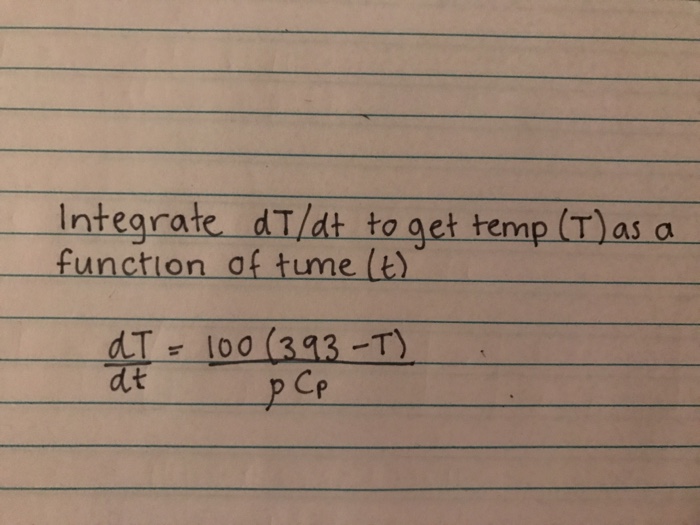 Integrate dT/dt to get temp (T) as a
function of time (t)
dT/dt = 100 (393 - T) / p Cp